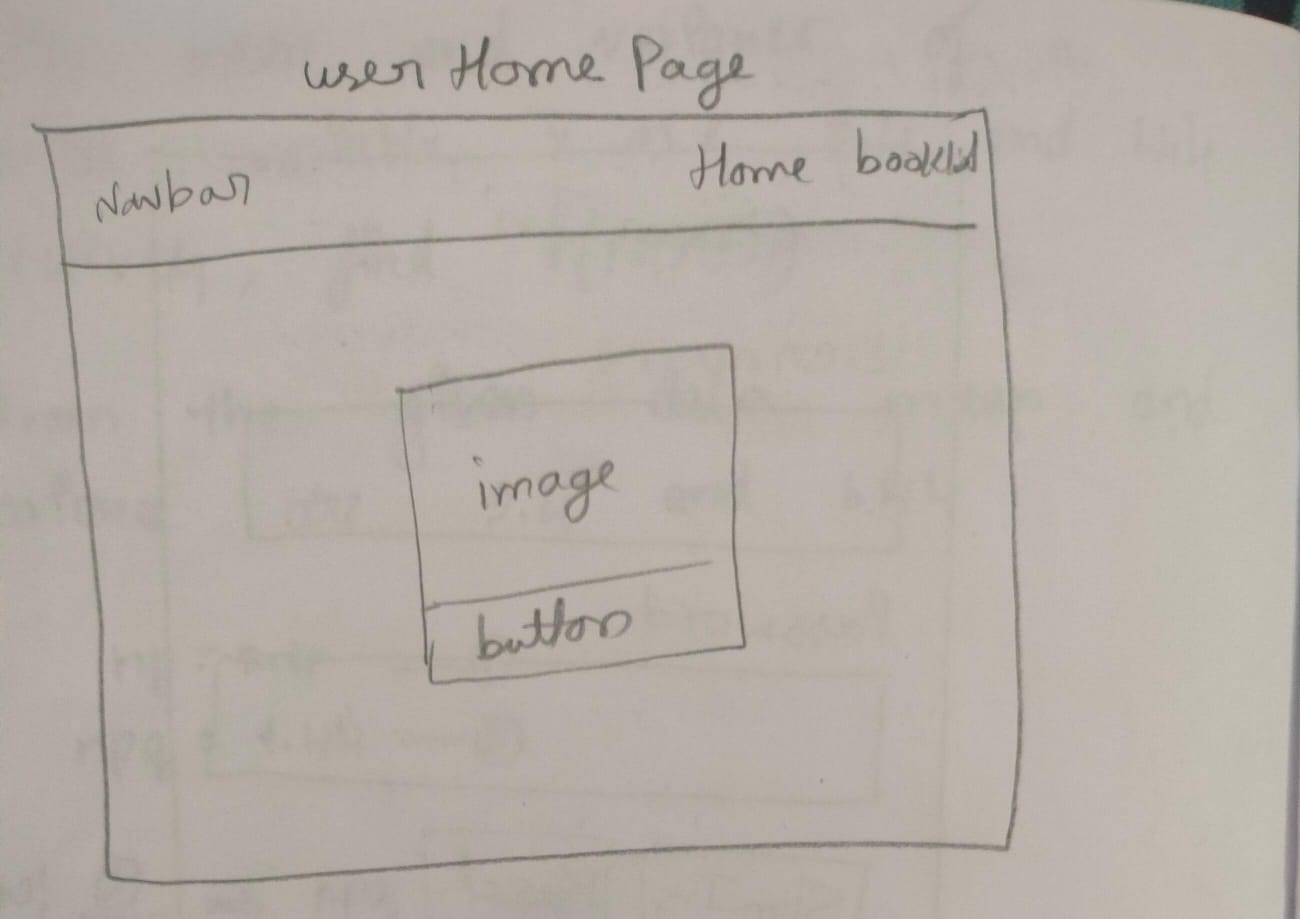 user Home Page
Navbar Home booklist
image
button